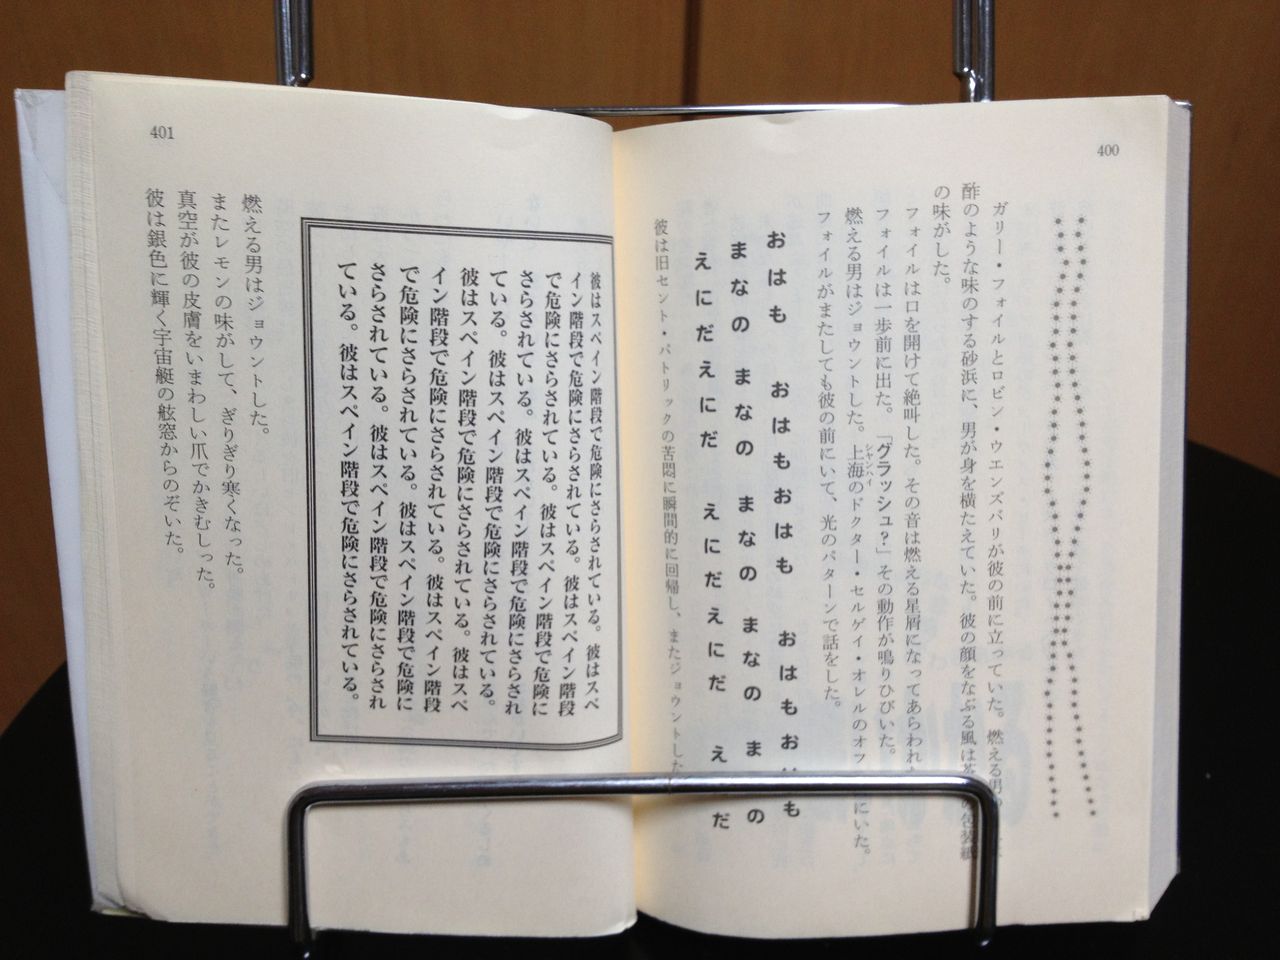 400
ガリー・フォイルとロビン・ウエンズバリが彼の前に立っていた。燃える男
酢のような味のする砂浜に、男が身を横たえていた。彼の顔をなぶる風は
の味がした。
フォイルは口を開けて絶叫した。その音は燃える星屑になってあらわれ
フォイルは一歩前に出た。「グラッシュ？」その動作が鳴りひびいた。
燃える男はジョウントした。上海のドクター・セルゲイ・オレルのオフ にいた。
シャンハイ
フォイルがまたしても彼の前にいて、光のパターンで話をした。
おはも おはもおはも おはもおはも
まなの まなの まなの まなの まの
えにだえにだ えにだえにだ えだ
彼は旧セント・パトリックの苦悶に瞬間的に回帰し、またジョウントした
401
彼はスペイン階段で危険にさらされている。彼はスペ
イン階段で危険にさらされている。彼はスペイン階段
で危険にさらされている。彼はスペイン階段で危険に
さらされている。彼はスペイン階段で危険にさらされ
ている。彼はスペイン階段で危険にさらされている。
彼はスペイン階段で危険にさらされている。彼はスペ
イン階段で危険にさらされている。彼はスペイン階段
で危険にさらされている。彼はスペイン階段で危険に
さらされている。彼はスペイン階段で危険にさらされ
ている。彼はスペイン階段で危険にさらされている。
燃える男はジョウントした。
またレモンの味がして、ぎりぎり寒くなった。
真空が彼の皮膚をいまわしい爪でかきむしった。
彼は銀色に輝く宇宙艇の舷窓からのぞいた。